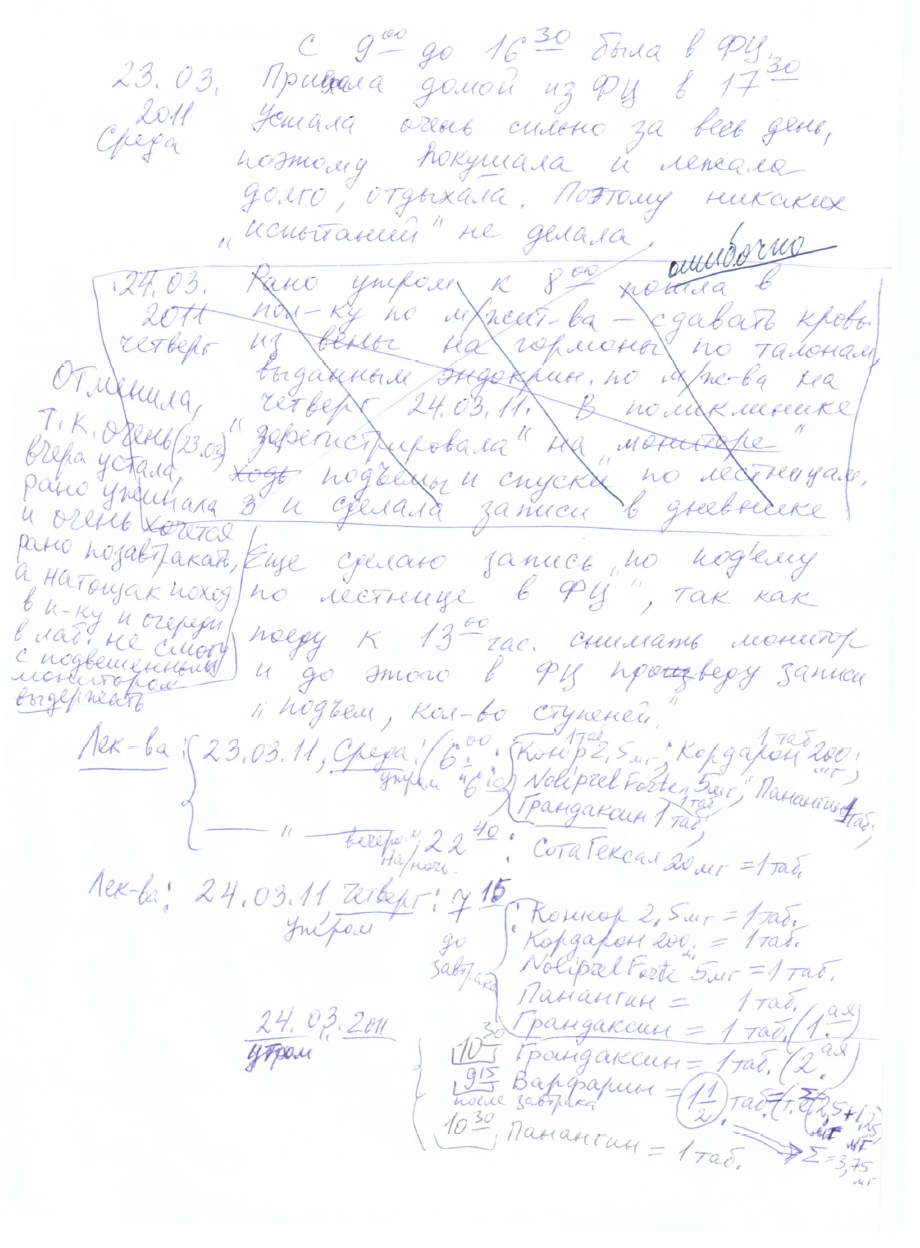 С 9⁰⁰ до 16³⁰ была в ФЦ.
23.03. Приехала домой из ФЦ в 17³⁰
2011 Устала очень сильно за весь день,
Среда поэтому покушала и лежала
долго, отдыхала. Поэтому никаких
„испытаний" не делала.
ошибочно
24.03. Рано утром к 8⁰⁰ пошла в
2011 пол-ку по м/жит-ва – сдавать кровь
четверг из вены на гормоны по талонам,
выданным эндокрин. по м/ж-ва на
четверг 24.03.11. В поликлинике
"зарегистрировала" на „мониторе"
ходь подъемы и спуски по лестницам,
3 и сделала записи в дневнике
Отменила,
т.к. очень (23.03)
вчера устала,
рано ужинала
и очень хочется
рано позавтракать,
а натощак поход
в п-ку и очереди
в лаб. не смогу
с подвешенным
монитором
выдержать
Еще сделаю запись „по под'ему
по лестнице в ФЦ", так как
поеду к 13⁰⁰ час. снимать монитор
и до этого в ФЦ произведу записи
„подъем, кол-во ступеней."
Лек-ва: 23.03.11, Среда: (6⁰⁰ : Конкор 2,5мг 1таб; Кордарон 200мг 1таб;
утром 6¹⁰ Noliprel Forte 5мг, Панангин 1таб;
Грандаксин 1таб;
—— " —— вечером 22⁴⁰: СотаГексал 20мг = 1таб.
на/ночь
Лек-ва: 24.03.11 четверг: 7¹⁵ Конкор 2,5мг = 1таб.
утром до завтрака Кордарон 200мг = 1таб.
Noliprel Forte 5мг = 1таб.
Панангин = 1таб.
Грандаксин = 1 таб. (1.ая)
24.03.2011
утром
10³⁰ Грандаксин = 1таб. (2.ая)
9¹⁵ Варфарин = 1 1/2 таб. (т.е. 2,5+1,25
после завтрака мг мг
10³⁰ Панангин = 1таб. Σ=3,75
мг